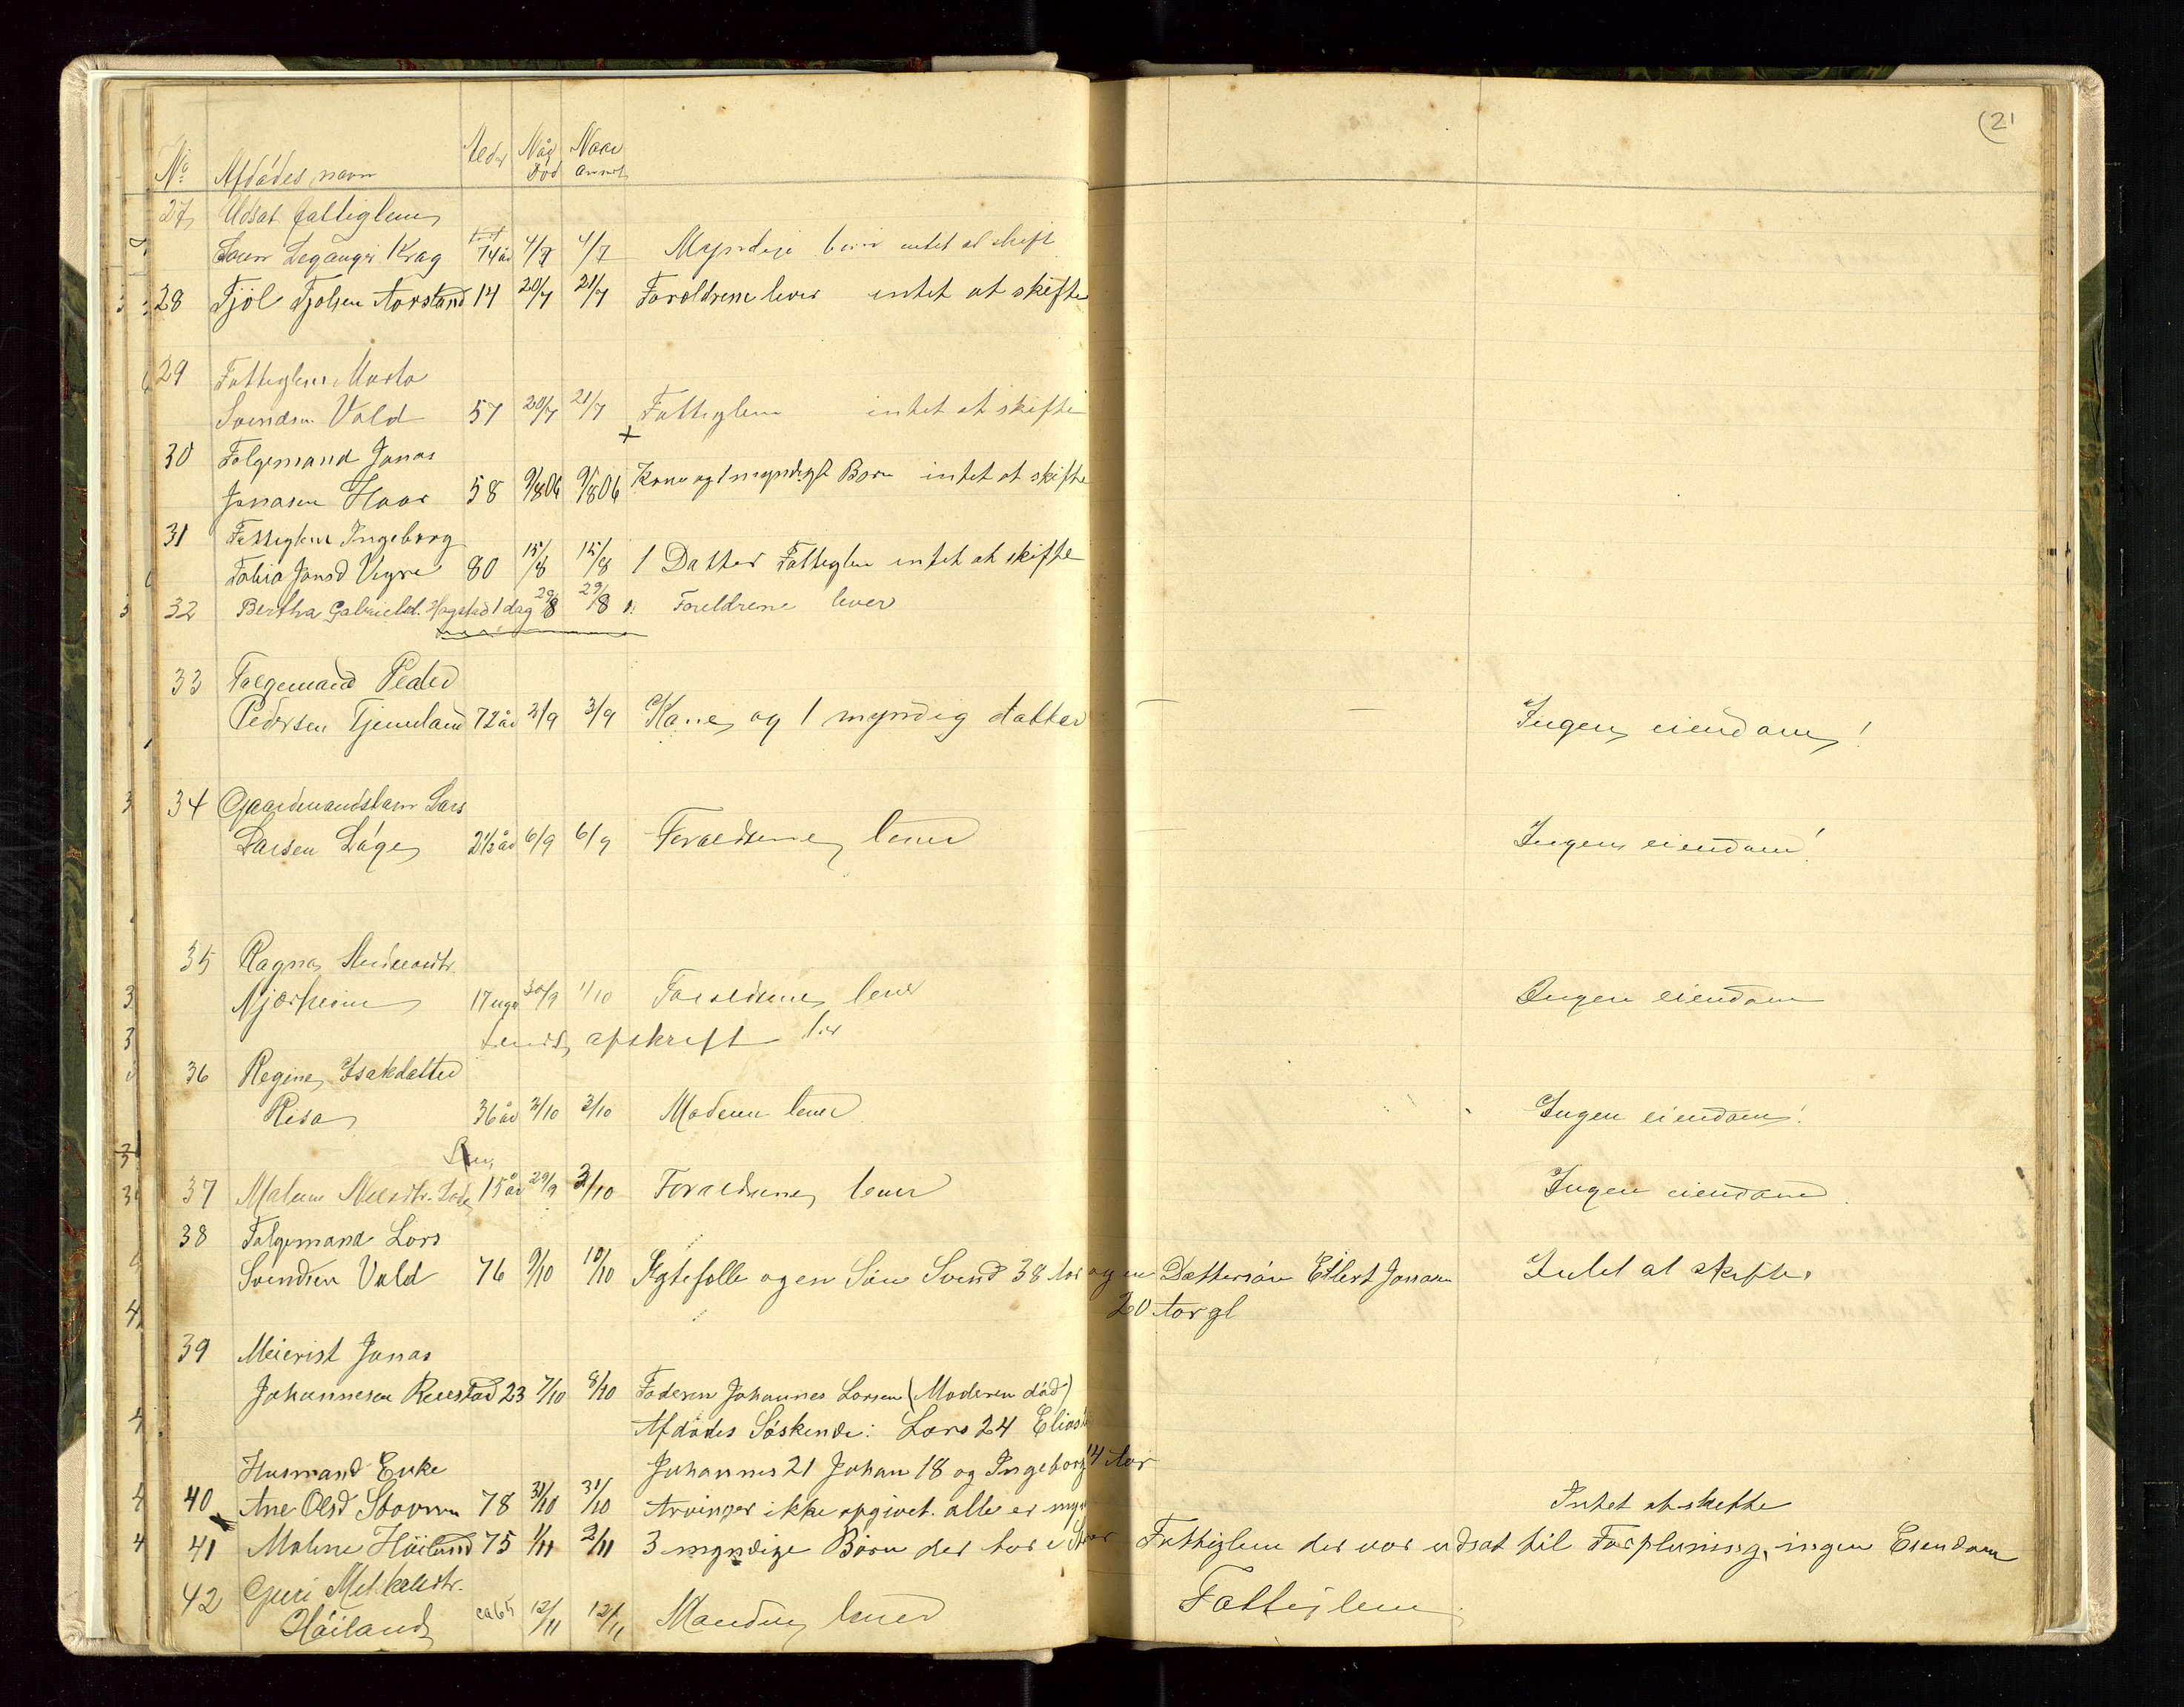 (21
No Afdødes navn Alder Når Død Naar anmeldt
27 Udsat fattiglem
Legangr Krag 74 år 4/7 4/7 Myndige børn intet at skifte
28 Fjøl Fjølsen Aarstand 14 20/7 21/7 Forældrene lever intet at skifte
29 Fattiglem Marta
Svendsen Vold 57 20/7 21/7 Fattiglem intet at skifte
30 Følgemand Jonas
Jonasen Haar 58 9/8 06 9/8 06 Kone og 1 myndigt Barn intet at skifte
31 Fattiglem Ingeborg
Tobia Jonsd Vigre 80 15/8 15/8 1 Datter Fattiglem intet at skifte
32 Bertha Gabrield. Hogstad 1 dag 29/8 29/8 Foreldrene lever
33 Følgemand Peder
Pedersen Tjemsland 72 år 2/9 3/9 Kone og 1 myndig datter — — Ingen eiendom!
34 Gaardmandsbarn Lars
Larsen Lóge 2½ år 6/9 6/9 Forældrene lever Ingen eiendom!
35 Ragna
Njærheim 17 uger 30/9 1/10 Forældrene lever Ingen eiendom
Sendt afskrift her
36 Regine Isakdatter
Risa 36 år 2/10 3/10 Moderen lever Ingen eiendom!
37 Malene Neesdtr. 15 år 29/9 3/10 Forældrene lever Ingen eiendom
38 Følgemand Lars
Svendsen Vold 76 9/10 10/10 Ægtefolle og en Søn Svend 38 Aar og en Dattersøn Eilert Jonasen Intet at skifte.
20 Aar gl
39 Meierist Jonas
Johannesen Reiestad 23 7/10 8/10 Faderen Johannes Larsen (Moderen død)
Afdødes Søskende: Lars 24 Elias
Johannes 21 Johan 18 og Ingeborg 14 Aar
Husmand Enke
40 Ane Olsd Stovrum 78 31/10 31/10 Arvinger ikke opgivet. alle er Intet at skifte
41 Malene Höiland 75 1/11 2/11 3 myndige Børn der bor i Fattiglem der var udsat til Forpleining, ingen Eiendom
42 Guri Mikkelsdtr.
Höiland ca 65 12/11 12/11 Manden lever Fattiglem